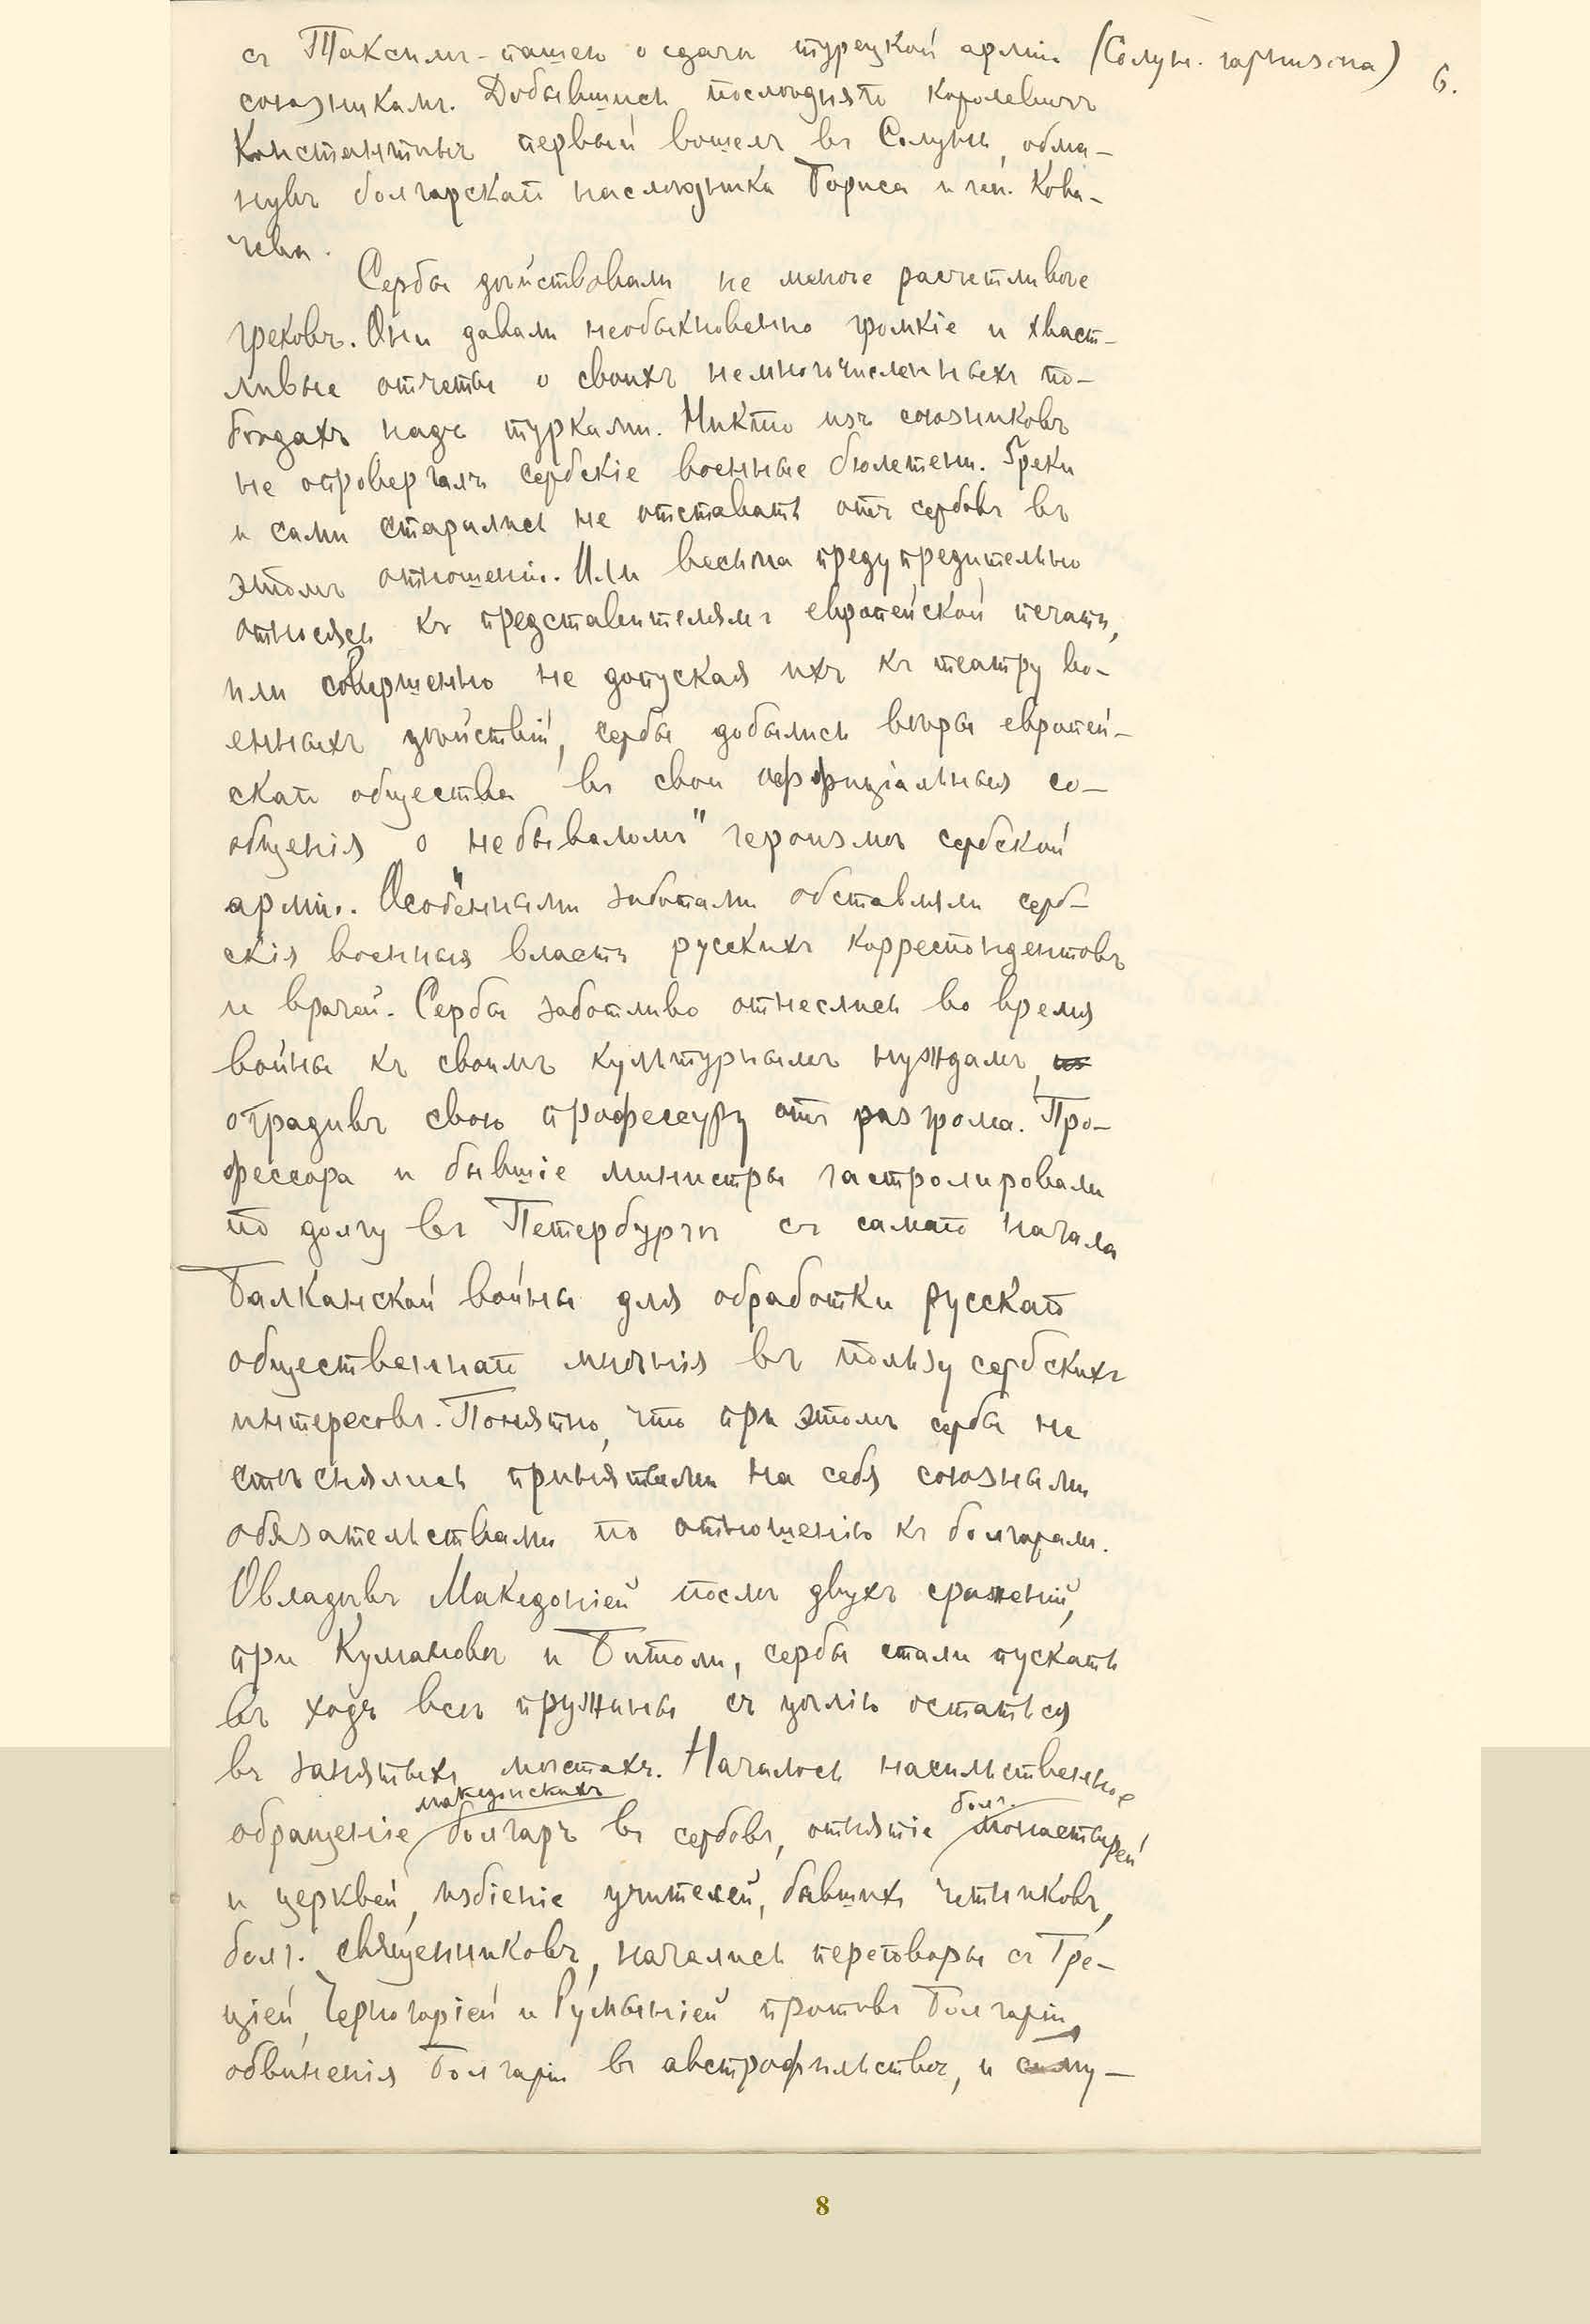 съ Таксимъ-пашею о сдачѣ турецкой арміи (Солун. гарнизона) 6.
союзникамъ. Добившись послѣдняго королевичъ
Константинъ первый вошелъ въ Солунь, обма-
нувъ болгарскаго наслѣдника Бориса и ген. Кова-
чева.
Сербы дѣйствовали не менѣе расчетливѣе
грековъ. Они давали необыкновенно громкіе и хваст-
ливые отчеты о своихъ немногочисленныхъ по-
бѣдахъ надъ турками. Никто изъ союзниковъ
не опровергалъ сербскіе военные бюлетени. Греки
и сами старались не отставать отъ сербовъ въ
этомъ отношеніи. Или весьма предупредительно
относясь къ представителямъ европейской печати,
или совершенно не допуская ихъ къ театру во-
енныхъ дѣйствій, сербы добились вѣры европей-
скаго общества въ свои оффиціальныя со-
общенія о "небываломъ" героизмѣ сербской
арміи. Особенными заботами обставляли серб-
скія военныя власти русскихъ корреспондентовъ
и врачей. Сербы заботливо отнеслись во время
войны къ своимъ культурнымъ нуждамъ,
оградивъ свою профессуру отъ разгрома. Про-
фессора и бывшіе министры гастролировали
по долгу въ Петербургѣ съ самаго начала
Балканской войны для обработки русскаго
общественнаго мнѣнія въ пользу сербскихъ
интересовъ. Понятно, что при этомъ сербы не
стѣснялись принятыми на себя союзными
обязательствами по отношенію къ болгарамъ.
Овладѣвъ Македоніей послѣ двухъ сраженій,
при Куманове и Битоли, сербы стали пускать
въ ходъ всѣ пружины съ цѣлію остаться
въ занятыхъ мѣстахъ. Началось насильственное
македонскихъ болг.
обращеніе болгаръ въ сербовъ, отнятіе монастырей
и церквей, избіеніе учителей, бывшихъ четниковъ,
болг. священниковъ, начались переговоры съ Гре-
ціей, Черногоріей и Румыніей противъ Болгаріи,
обвиненія Болгаріи въ австрофильствѣ, и